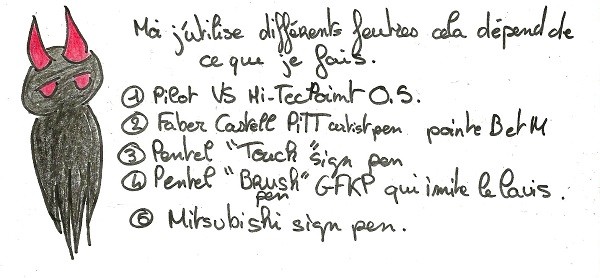 Moi j'utilise différents feutres cela dépend de
ce que je fais.
① Pilot V5 Hi-TecPoint 0.5.
② Faber Castell PiTT artist pen pointe B et M
③ Pentel "Touch" sign pen
④ Pentel "Brush" pen GFKP qui imite le lavis.
⑤ Mitsubishi sign pen.